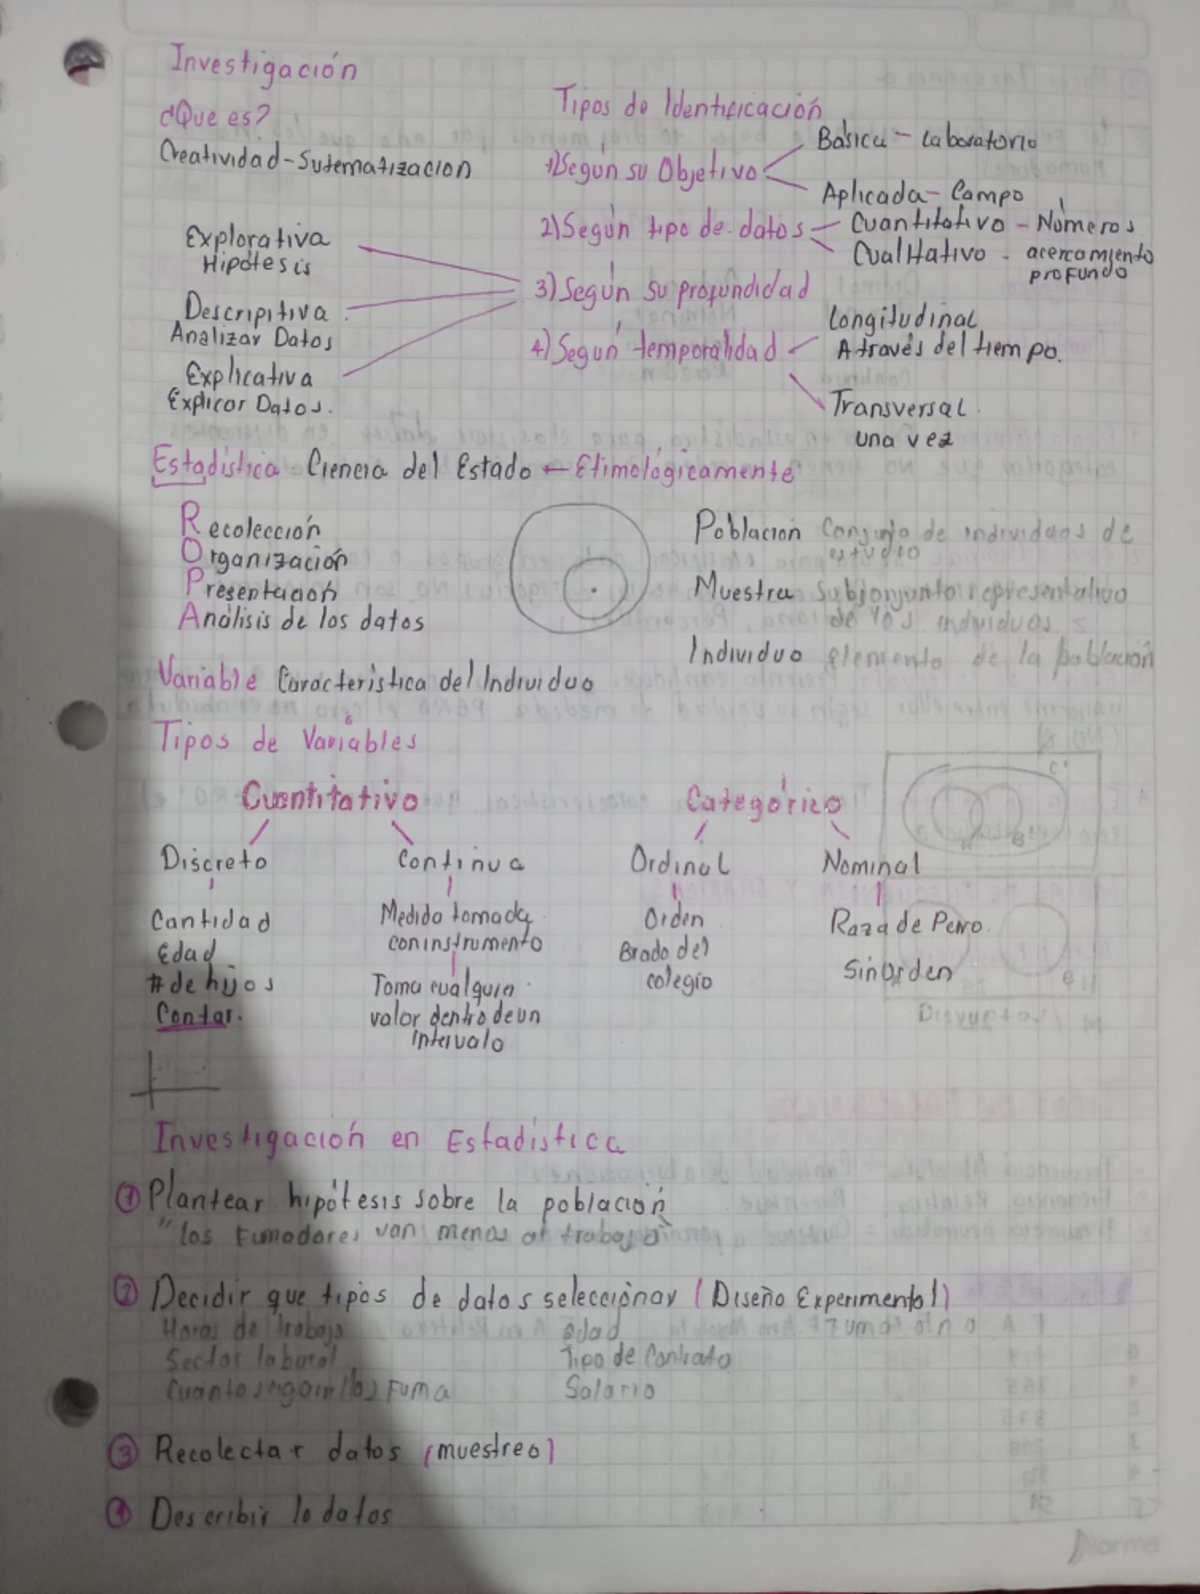 Investigación
¿Que es?
Creatividad - Sutematizacion
Tipos de Identificación
1) Según su Objetivo
Básica - Laboratorio
Aplicada - Campo
2) Según tipo de datos
Cuantitativo - Números
Cualitativo - acercamiento
profundo
3) Según su profundidad
Explorativa
Hipótesis
Descripitiva
Analizar Datos
Explicativa
Explicar Datos.
4) Según temporalidad
Longitudinal
A través del tiempo.
Transversal
una vez
Estadística Ciencia del Estado ← Etimológicamente
Recolección
Organización
Presentación
Análisis de los datos
Población Conjunto de individuos de
estudio
Muestra Subjonjunto representativo
de los individuos
Individuo Elemento de la población
Variable Característica del Individuo
Tipos de Variables
Cuantitativo
Categórico
Discreto
Continua
Ordinal
Nominal
Cantidad
Edad
# de hijos
Contar.
Medida tomada
con instrumento
Toma cualquier
valor dentro de un
intervalo
Orden
Grado del
colegio
Raza de Perro.
Sin Orden
Investigación en Estadística
① Plantear hipótesis sobre la población
"los Fumadores van menos al trabajo"
② Decidir que tipos de datos seleccionar (Diseño Experimental)
Horas de trabajo
edad
Sector laboral
Tipo de Contrato
Cuantos cigarrillos Fuma
Salario
③ Recolectar datos (muestreo)
④ Describir lo datos
Norma